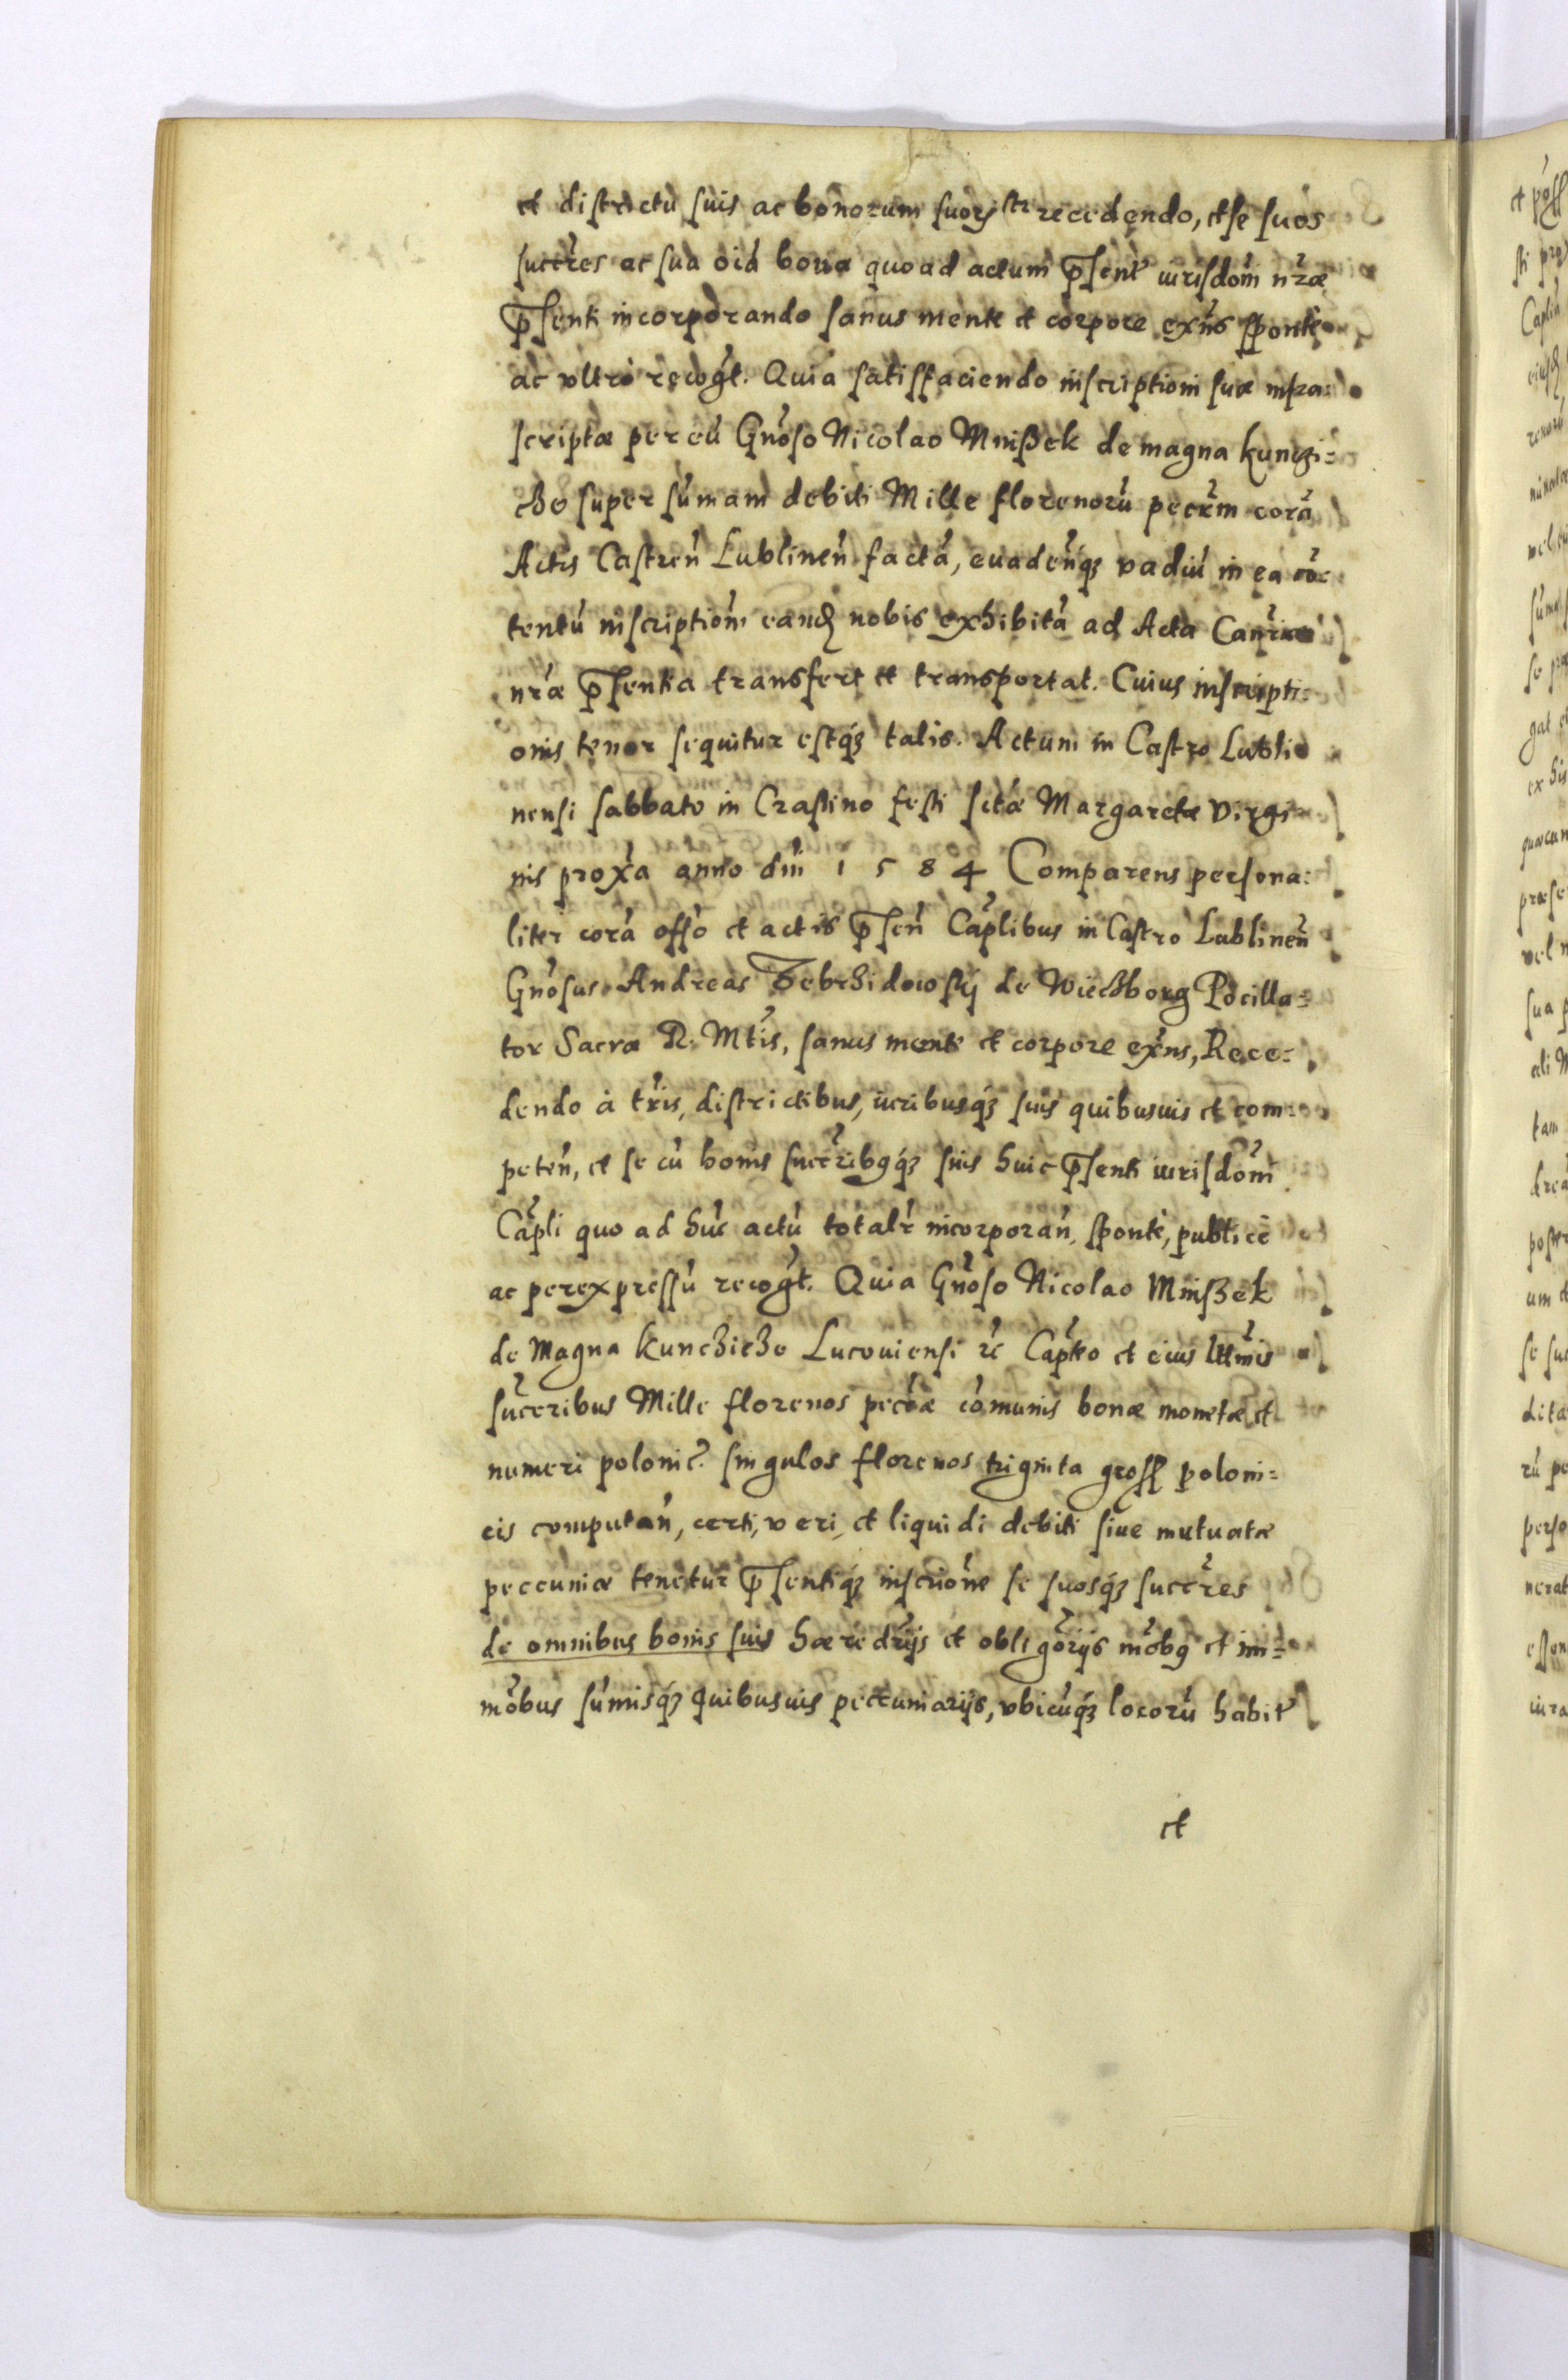 et districtu suis ac bonorum suorꝫ etc recedendo, et se suos
succ̃res ac sua oĩa bona quo ad actum p̃sent̃ iurisdõni nr̃æ
p̃senti incorporando sanus mente et corpore exñs sponte
ac vltro recog̃t. Quia satisfaciendo inscriptioni suæ infra=
scriptæ per eũ Gñoso Nicolao Mniſzek de magna kunczi=
cze super sũmam debiti Mille florenorũ pecc̃m corã
Actis Castreñ Lublineñ factã, euadeñqꝫ vadiũ in ea cõ=
tentũ inscriptiõm eandꝫ nobis exhibitã ad Acta Canc̃
nr̃æ p̃sentia transfert et transportat. Cuius inscripti=
onis tenor sequitur estqꝫ talis. Actum in Castro Lubli
nensi sabbato in Crastino festi sctæ Margaretæ Virgi=
nis prox̃a anno dñi 1584 Comparens persona=
liter corã off̃o et actis p̃señ Cap̃libus in Castro Lublineñ
Gñosus Andreas Zebrzidowskj de Wieczborg Pocilla=
tor Sacræ R. Mt̃is, sanus mente et corpore exñs, Rece=
dendo à tr̃is, districtibus, iuribusqꝫ suis quibusuis et com=
peteñ, et se cũ bonis succ̃ribꝰqꝫ suis huic p̃senti iurisdõni
Cap̃li quo ad hũc actũ totalr̃ incorporañ, sponte, publice
ac per expressũ recog̃t. Quia Gñoso Nicolao Mniſzek
de Magna kunczicze Lucouiensi ꝛc Cap̃teo et eius lt̃imis
succ̃eribus Mille florenos pecc̃æ cõmunis bonæ monetæ et
numeri polonic̃. singulos florenos triginta gross̃ poloni=
cis computañ, certi, veri, et liquidi debiti siue mutuatæ
peccuniæ tenetur p̃sentiqꝫ inscriõne se suosqꝫ succ̃res
de omnibus bonis suis hæredr̃ijs et oblig̃orijs mõbꝰ et im=
mõbus sũmisqꝫ quibusuis peccuniarijs, vbicũqꝫ locorũ habit̃
et